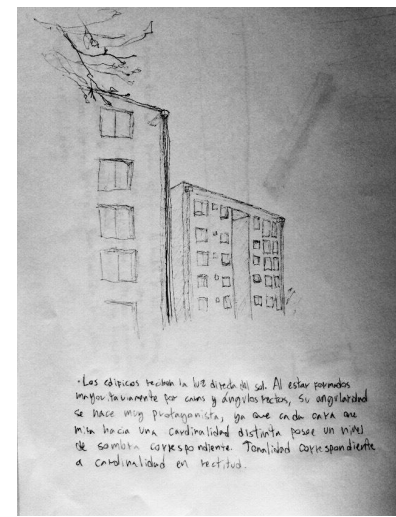 · Los edificos reciben la luz directa del sol. Al estar formados
mayoritariamente por caras y ángulos rectos, su angularidad
se hace muy protagonista, ya que cada cara que
mira hacia una cardinalidad distinta posee un nivel
de sombra correspondiente. Tonalidad correspondiente
a cardinalidad en rectitud.